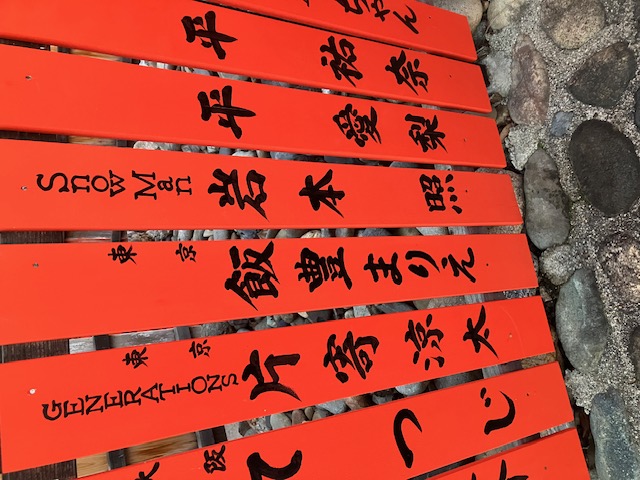 ちゃん
平 祐奈
平 愛梨
Snow Man 岩本 照
東京 飯豊まりえ
東京 GENERATIONS 片寄涼太
阪 てつじ